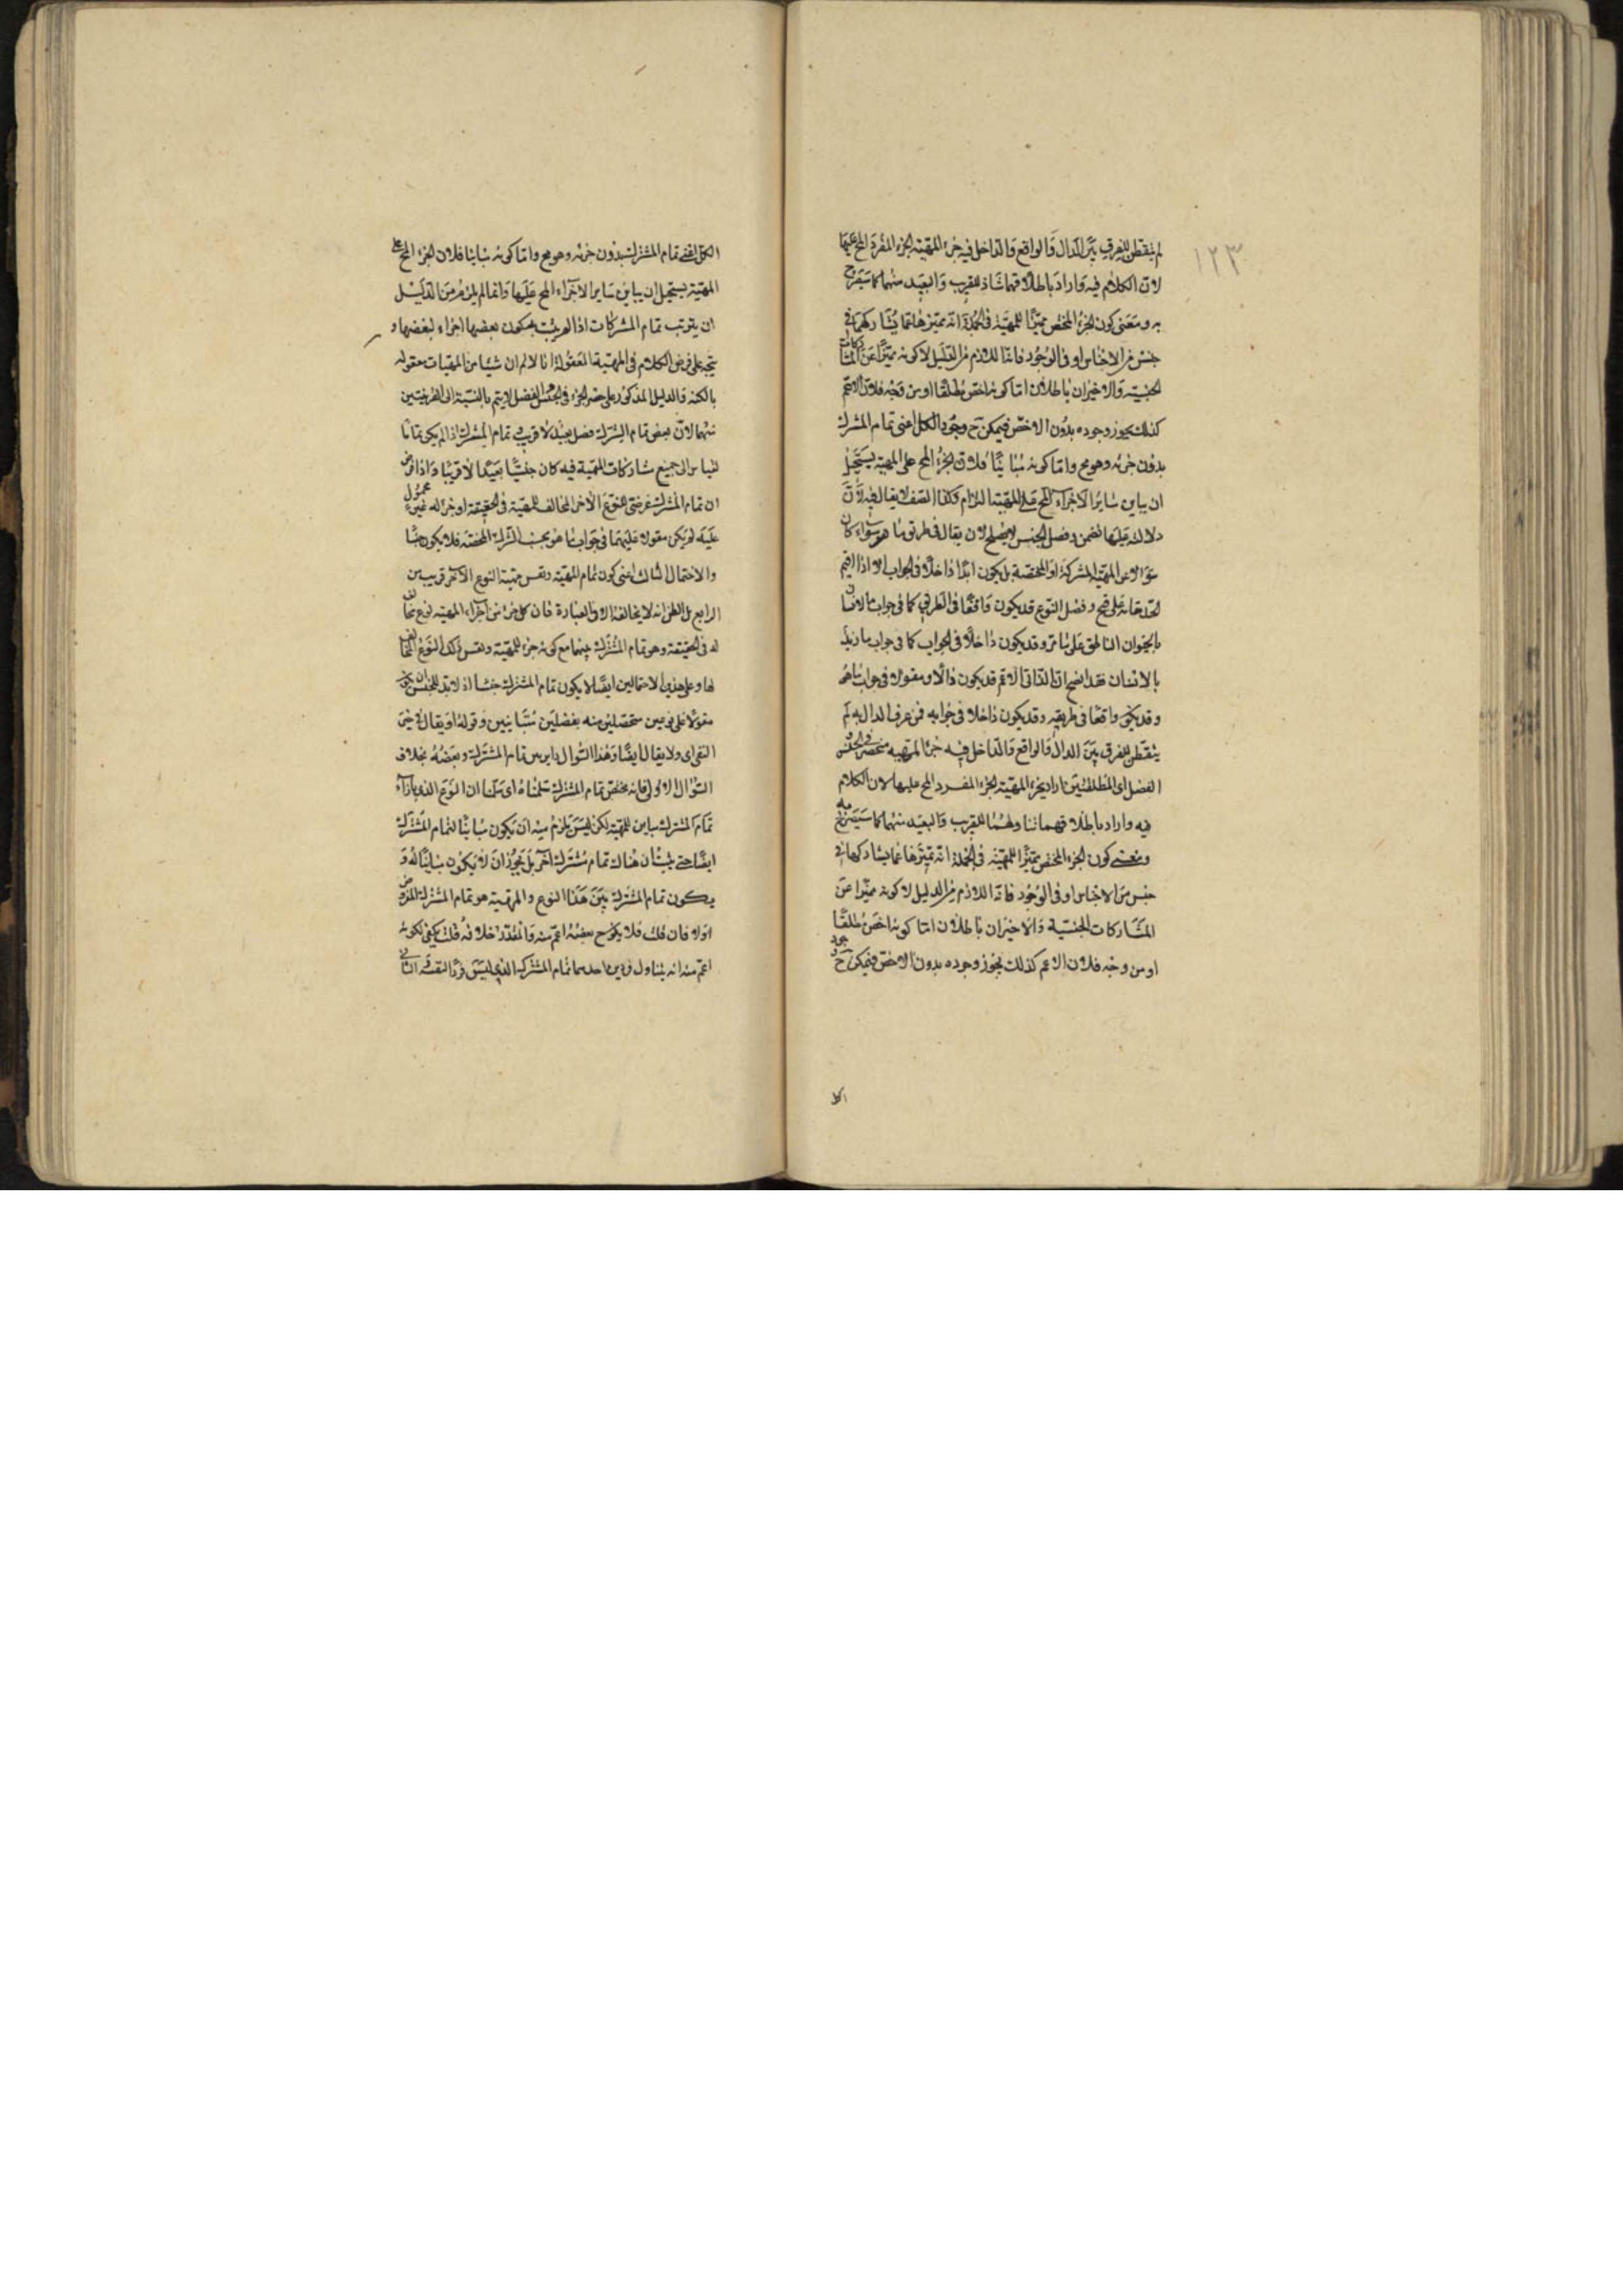 ١٢٣
لم يتفطن للفرق بين الدال والواقع والداخل فيه جزء المهية الجزء المفرد المح عليها
لان الكلام فيه واراد باطلاقهما للقريب والبعيد منهما كما سيصرح
به ومعنى كون الجزء المختص مميزا للمهية في الجملة انه مميزها عما يشاركها في
جنس من الاجناس او في الوجود فانما اللازم من الدليل لا كونه مميزا عن المشاركات
الجنسية والاخيران باطلان اما كونه اخص مطلقا او من وجه فلان الاعم
كذلك يجوز وجوده بدون الاخص فيمكن ح وجود الكل اعنى تمام المشترك
بدون جزئه وهو مح واما كونه مباينا فلان الجزء المح على المهية يستحيل
ان يباين سائر الاجزاء المح على المهية التزام وكذا الصنف لا يقال فيه لان
دلالته عليها تضمن وفصل الجنس لا يصلح لان يقال في طريق ما هو سواء كان
سؤالا عن المهية المشتركة او المختصة بل يكون ابدا داخلا في الجواب الا اذا اقيم
الحد مقامه على قبح وفصل النوع قد يكون واقعا في الطريق كما في جواب ما الانسان
بالحيوان الناطق على ما مر وقد يكون داخلا في الجواب كما في جواب ما زيد
بالانسان فقد اتضح ان الذاتي الاعم قد يكون دالا ومقولا في جواب ما هو
وقد يكون واقعا في طريقه وقد يكون داخلا في جوابه فمن عرف الدال به لم
يتفطن للفرق بين الدال والواقع والداخل فيه جزء المهية منحصر في الجنس
الفصل اى المطلقين اراد بجزء المهية الجزء المفرد المح عليها لان الكلام
فيه واراد باطلاقهما تناولهما للقريب والبعيد منهما كما سيصرح به
ومعنى كون الجزء المختص مميزا للمهية في الجملة انه تميزها عما يشاركها في
جنس من الاجناس او في الوجود فانه اللازم من الدليل لا كونه مميزا عن
المشاركات الجنسية والاخيران باطلان اما كونه اخص مطلقا
او من وجه فلان الاعم كذلك يجوز وجوده بدون الاخص فيمكن ح وجود
الكل
الكل اعنى تمام المشترك بدون جزئه وهو مح واما كونه مباينا فلان الجزء المح على
المهية يستحيل ان يباين ساير الاجزاء المح عليها وانما لم يلزم من الدليل
ان يترتب تمام المشتركات اذا لم يثبت بكون بعضها اجزاء لبعضها و
يتجه على فرض الكلام في المهية المعقولة انا لا نم ان شيئا من المهيات معقولة
بالكنه والدليل المذكور على حصر الجزء في الجنس والفصل لا يتم بالنسبة الى القريبتين
منهما لان بعض تمام المشترك فصل بعيد لا قريب وتمام المشترك اذا لم يكن تماما
لقياس الى جميع مشاركات المهية فيه كان جنسا بعيدا لا قريبا واذا فرض
ان تمام المشترك عرضى للنوع الاخر المخالف للمهية في الحقيقة او جزء له غير محمول
عليه لم يكن مقولا عليهما في جواب ما هو بحسب الشركة المحضة فلا يكون جنسا
والاحتمال الثالث اعنى كون تمام المهية ونفس مهية النوع الآخر قريب من
الرابع بل الظن انه لا يخالفه الا في العبارة فان كل جزء من اجزاء المهية نوع مخالف
له في الحقيقة وهو تمام المشترك بينهما مع كونه جزء للمهية ونفس ذلك النوع المخالف
لها وعلى هذين الاحتمالين ايضا لا يكون تمام المشترك جنسا اذ لا بد للجنس ان يكون
مقولا على نوعين متحصلين منه بفصلين متباينين وقوله او يقال في حيز
النفي اى ولا يقال ايضا وهذا السؤال داير بين تمام المشترك وبعضه بخلاف
السؤال الاول فانه يختص تمام المشترك سلمناه اى سلمنا ان النوع الذى بازاء
تمام المشترك مباين للمهية لكن ليس يلزم منه ان يكون مباينا لتمام المشترك
ايضا حتى يثبت ان هناك تمام مشترك آخر بل يجوز ان لا يكون مباينا له و
يكون تمام المشترك بين هذا النوع والمهية هو تمام المشترك المفروض
اولا فان قلت فلا يكون ح بعضه اعم منه والمقدر خلافه قلت يكفى لكونه
اعم منه انه يتناول تمام المشترك الذى ليس فردا لنفسه الثانى